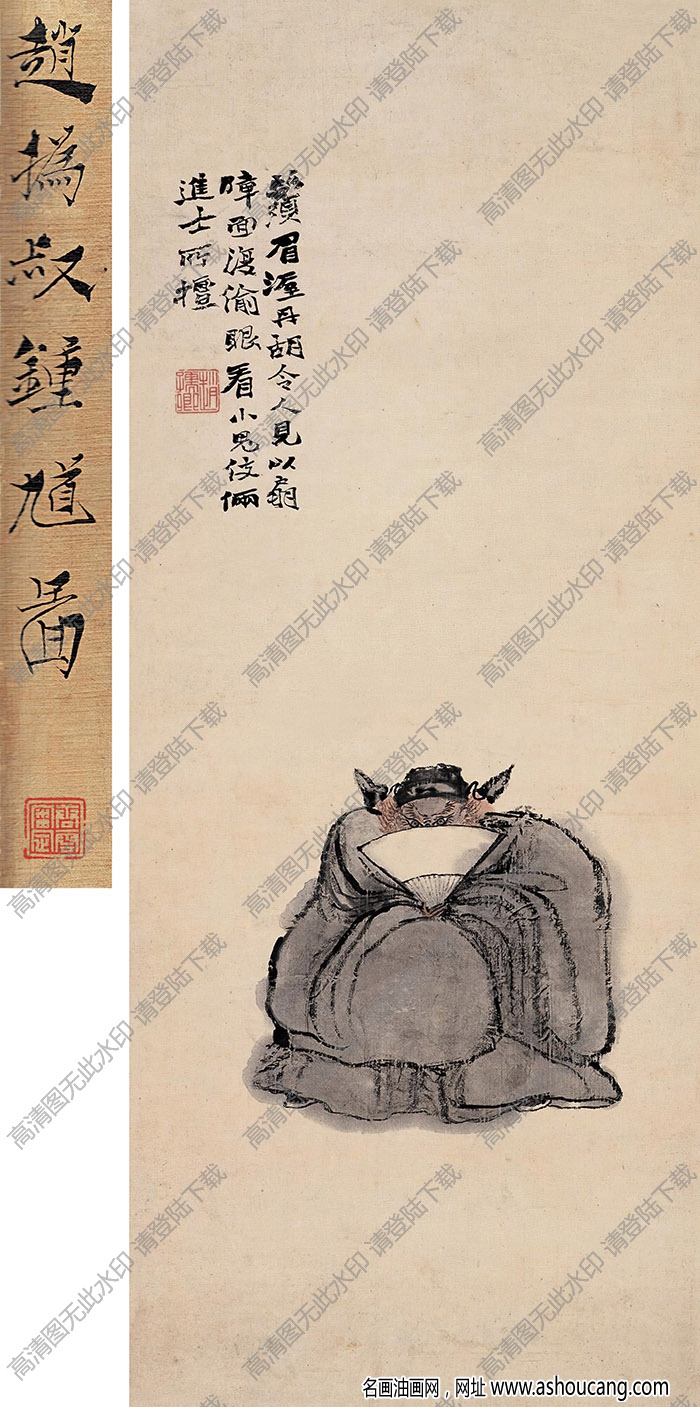 趙撝叔鍾馗啚
鬚眉渥丹胡令人見以扇
障面復偷眼看小鬼伎倆
進士所擅
高清图无此水印 请登陆下载
名画油画网，网址 www.ashoucang.com